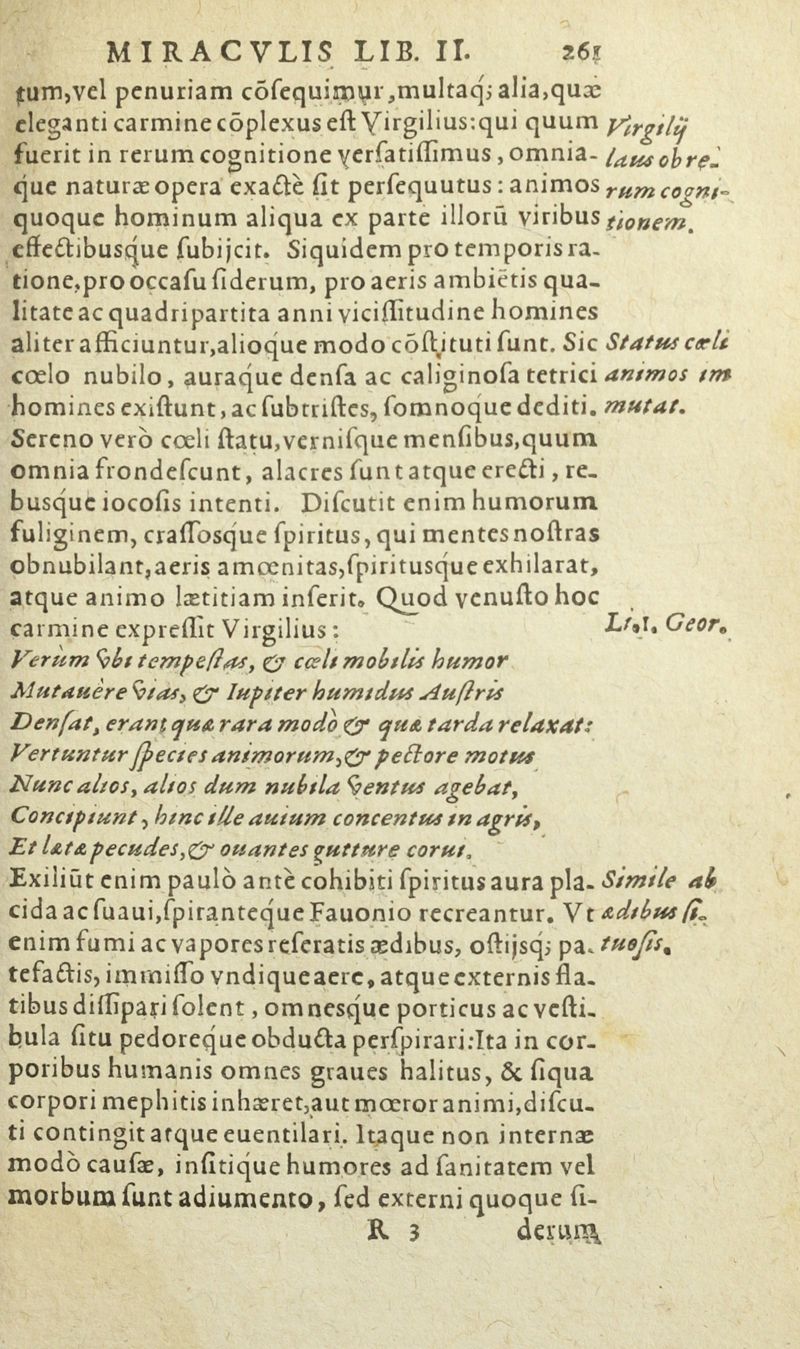 MIRACVLIS LIB. II. 261
tum,vel penuriam cõsequimur,multaq; alia,quæ
eleganti carmine cõplexus est Virgilius:qui quum Virgilij
fuerit in rerum cognitione versatissimus, omnia- laus ob re-
que naturæ opera exactè sit persequutus: animos rum cogni-
quoque hominum aliqua ex parte illorũ viribus tionem.
effectibusque subijcit. Siquidem pro temporis ra-
tione,pro occasu siderum, pro aeris ambiẽtis qua-
litate ac quadripartita anni vicissitudine homines
aliter afficiuntur,alioque modo cõstituti sunt. Sic Status cæli
cœlo nubilo, auraque densa ac caliginosa tetrici animos im
homines existunt, ac subtristes, somnoque dediti. mutat.
Sereno verò cœli statu,vernisque mensibus,quum
omnia frondescunt, alacres sunt atque erecti, re-
busque iocosis intenti. Discutit enim humorum
fuliginem, crassosque spiritus, qui mentes nostras
obnubilant,aeris amœnitas,spiritusque exhilarat,
atque animo lætitiam inserit. Quod venusto hoc
carmine expressit Virgilius: Li.1. Geor.
Verùm vbi tempestas, & cœli mobilis humor
Mutauêre vias, & Iupiter humidus Austris
Densat, erant quæ rara modò & quæ tarda relaxat:
Vertuntur species animorum,& pectore motus
Nunc alios, alios dum nubila ventus agebat,
Concipiunt, hinc ille auium concentus in agris,
Et lætæ pecudes,& ouantes gutture corui.
Exiliũt enim paulò antè cohibiti spiritus aura pla- Simile ab
cida ac suaui,spiranteque Fauonio recreantur. Vt ædibus si-
enim fumi ac vapores reseratis ædibus, ostijsq; pa- tuosis.
tefactis, immisso vndique aere, atque externis fla-
tibus dissipari solent, omnesque porticus ac vesti-
bula situ pedoreque obducta perspirari:Ita in cor-
poribus humanis omnes graues halitus, & siqua
corpori mephitis inhæret,aut mœror animi,discu-
ti contingit atque euentilari. Itaque non internæ
modò causæ, insitique humores ad sanitatem vel
morbum sunt adiumento, sed externi quoque si-
R 3 derum